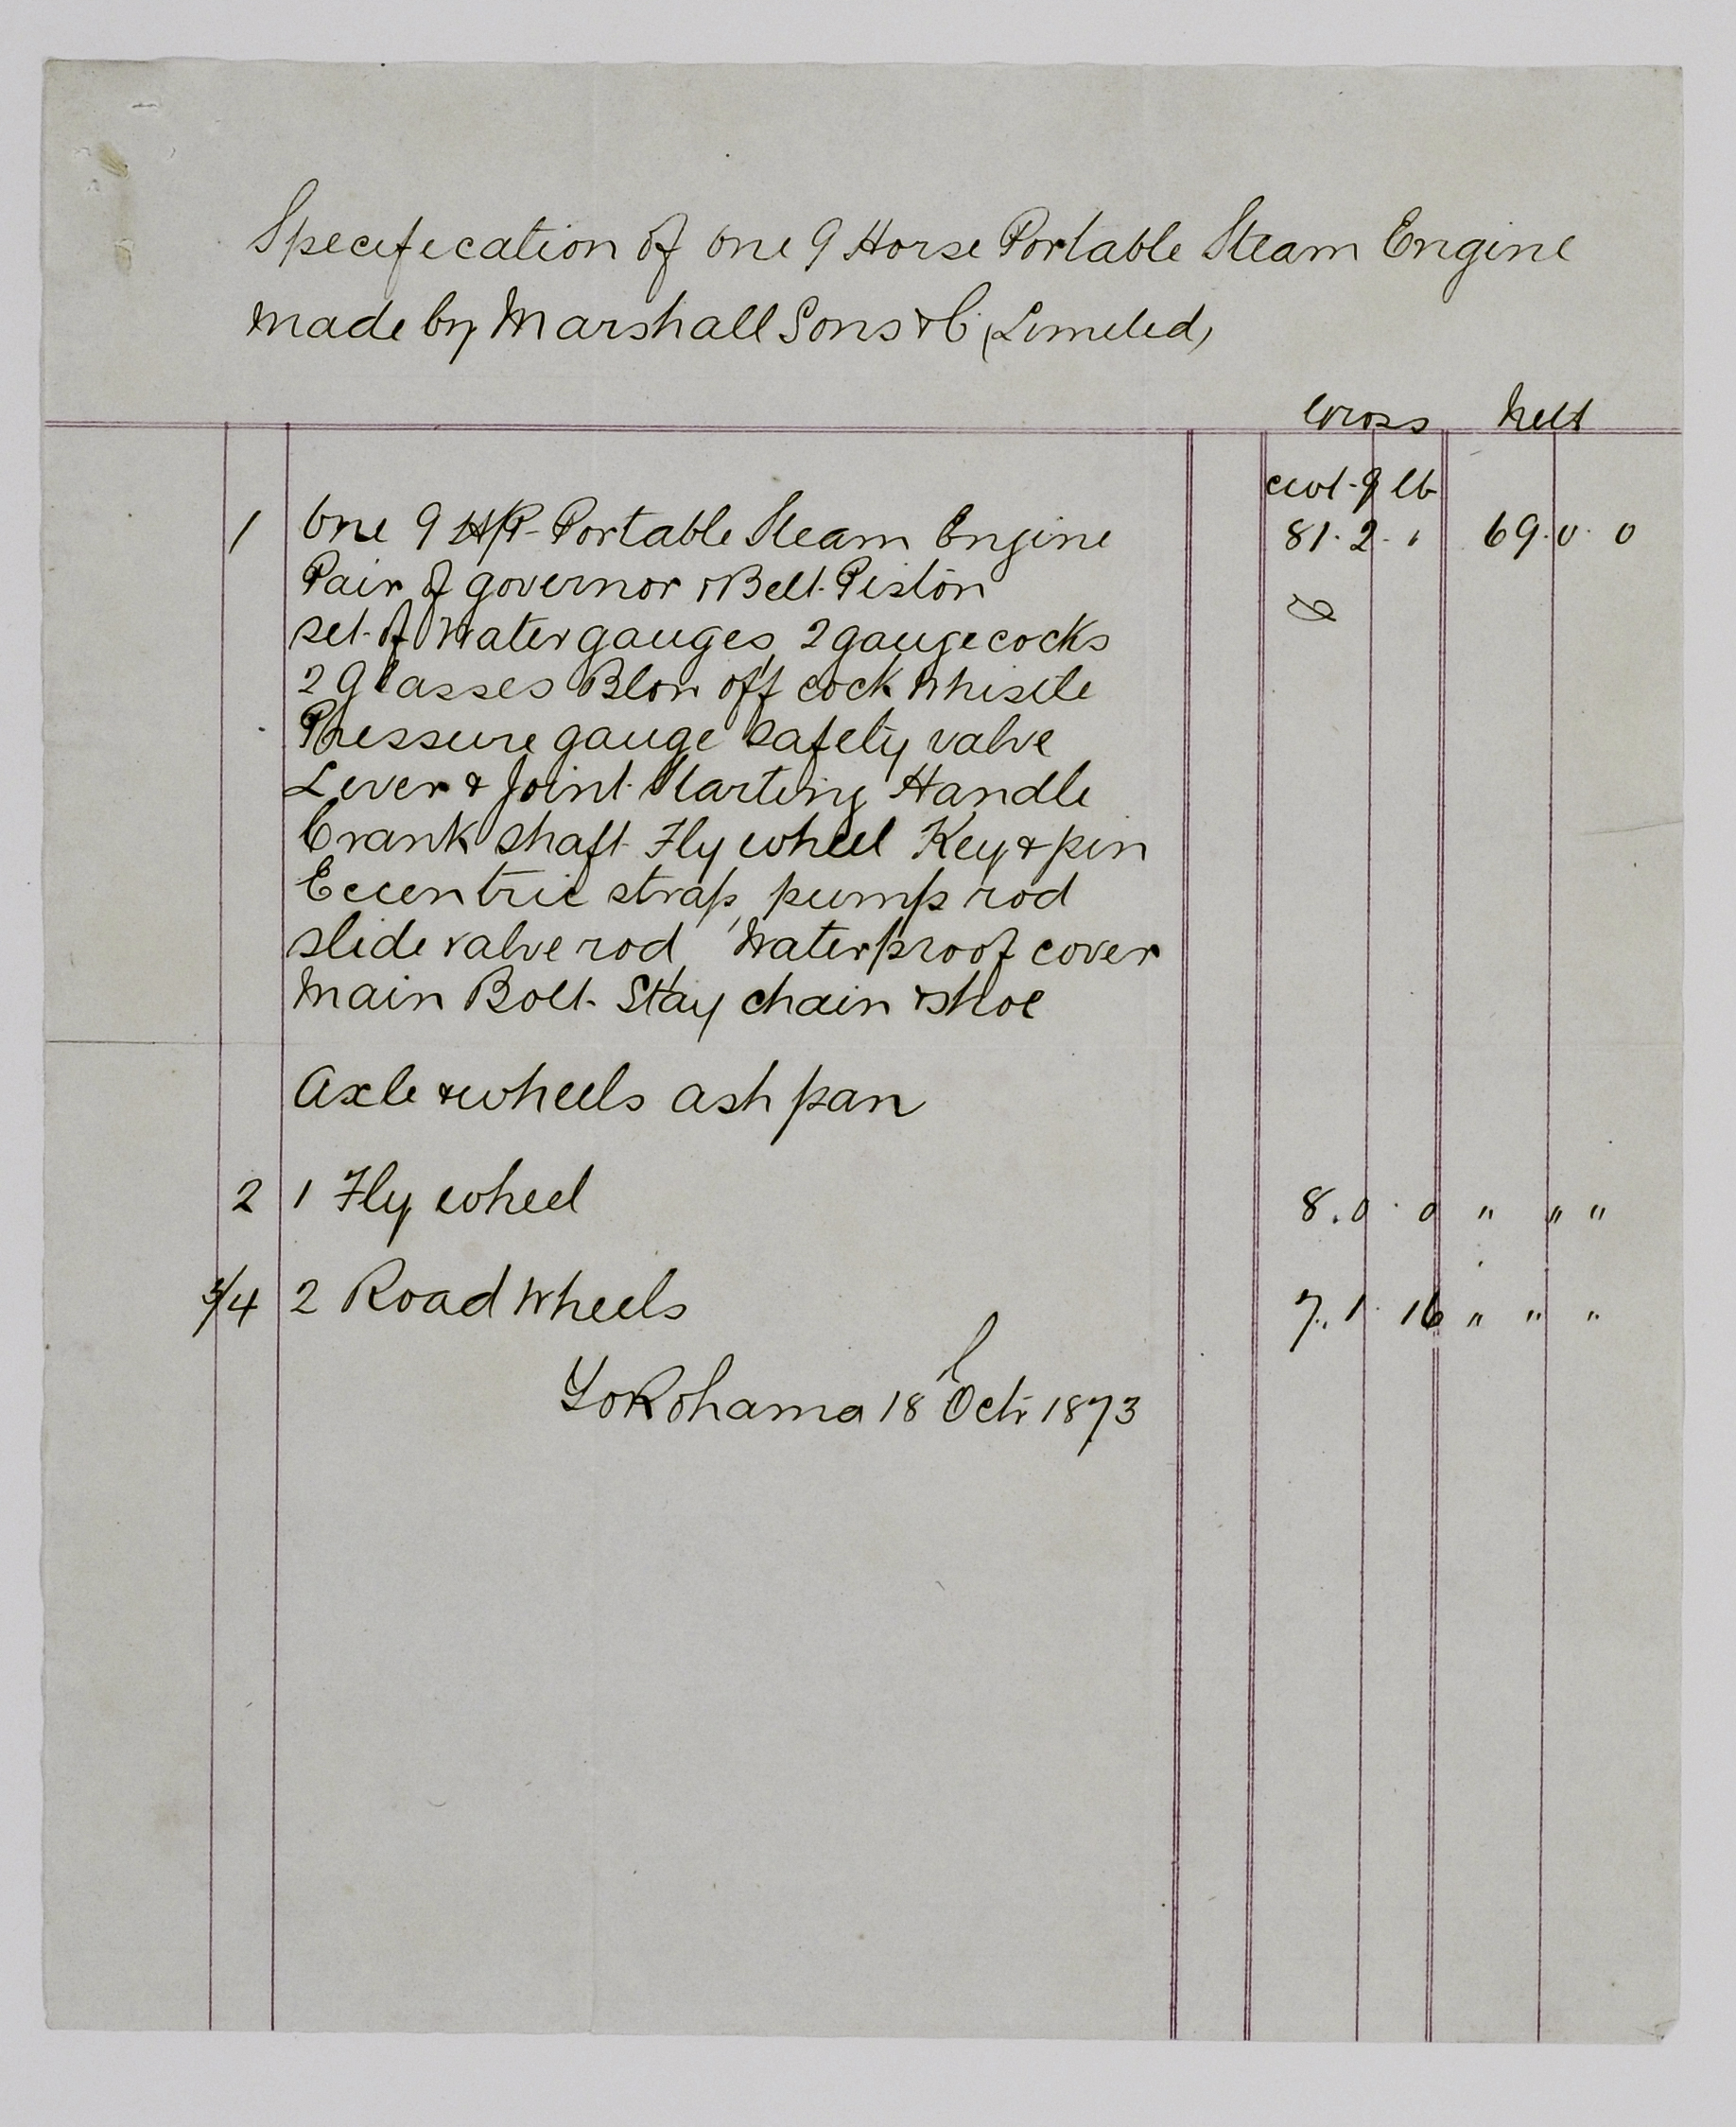 Specification of One 9 Horse Portable Steam Engine
Made by Marshall Sons & Co (Limited)
Gross Nett
cwt. q lb
1 One 9 H/P Portable Steam Engine 81. 2. " 69. 0. 0
Pair of governor & Belt. Piston
set of Water gauges, 2 gauge cocks
2 Glasses Blow off cock Whistle
Pressure gauge safety valve
Lever & Joint Starting Handle
Crank shaft Fly wheel Key & pin
Eccentric strap, pump rod
slide valve rod, Waterproof cover
Main Bolt Stay chain & shoe
Axle & wheels ash pan
2 1 Fly wheel 8. 0. 0 " " "
3/4 2 Road Wheels 7. 1. 16 " " "
Yokohama 18th Octr 1873